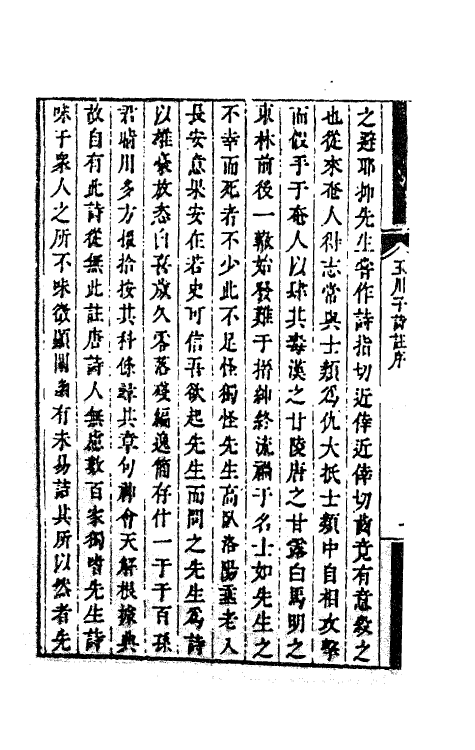 玉川子詩註序
之避耶抑先生嘗作詩指切近倖近倖切齒竟有意殺之
也從來奄人得志常與士類爲仇大抵士類中自相攻擊
而假手于奄人以肆其毒漢之甘陵唐之甘露白馬明之
東林前後一轍始發難于搢紳終流禍于名士如先生之
不幸而死者不少此不足怪獨怪先生高臥洛陽垂老入
長安意果安在若史可信吾欲起先生而問之先生爲詩
以雄豪放恣自喜歲久零落殘編逸簡存什一于千百孫
君晴川多方摭拾按其科條諒其章句神會天解根據典
故自有此詩從無此註唐詩人無慮數百家獨嗜先生詩
味于衆人之所不味微顯闡幽有未易詰其所以然者先